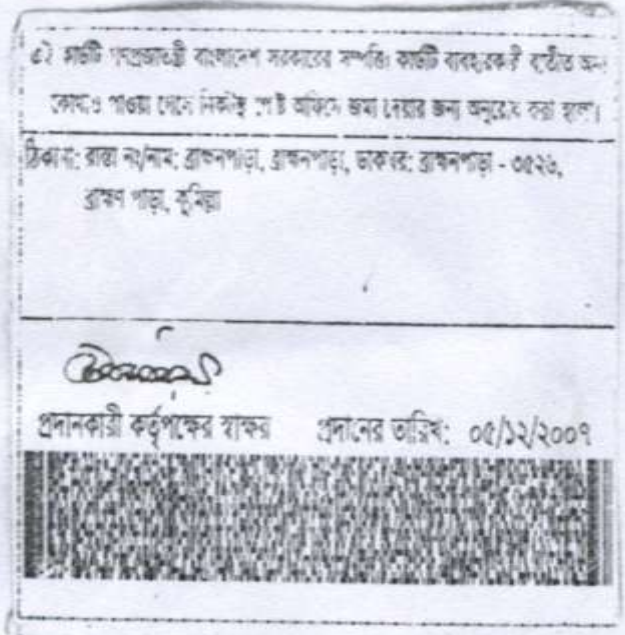 এই কার্ডটি গণপ্রজাতন্ত্রী বাংলাদেশ সরকারের সম্পত্তি। কার্ডটি ব্যবহারকারী ব্যতীত অন্য
কোথাও পাওয়া গেলে নিকটস্থ পোষ্ট অফিসে জমা দেয়ার জন্য অনুরোধ করা হলো।
ঠিকানা: রাস্তা নং/নাম: ব্রাহ্মনপাড়া, ব্রাহ্মনপাড়া, ডাকঘর: ব্রাহ্মনপাড়া - ৩৫২৬,
ব্রাহ্মণ পাড়া, কুমিল্লা
প্রদানকারী কর্তৃপক্ষের স্বাক্ষর প্রদানের তারিখ: ০৫/১২/২০০৭